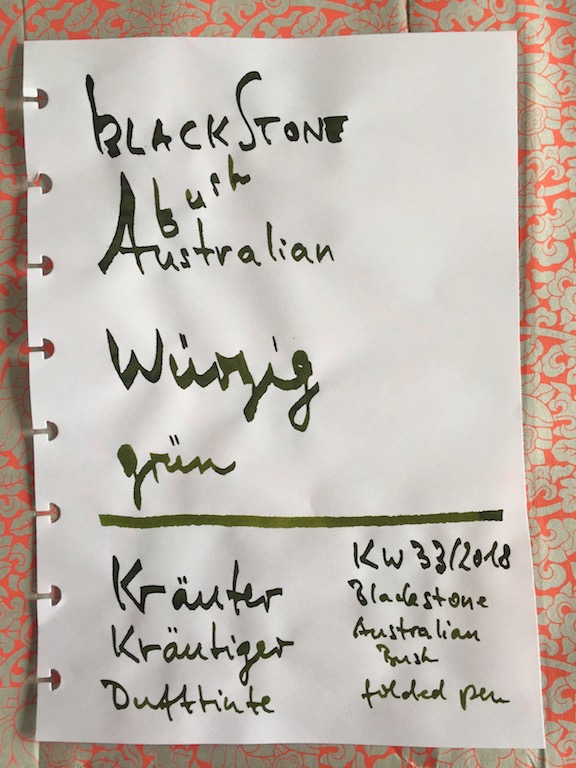 BLACKSTONE
bush
Australian
Würzig
grün
Kräuter
Kräutiger
Dufttinte
KW 33/2018
Blackstone
Australian
Bush
folded pen